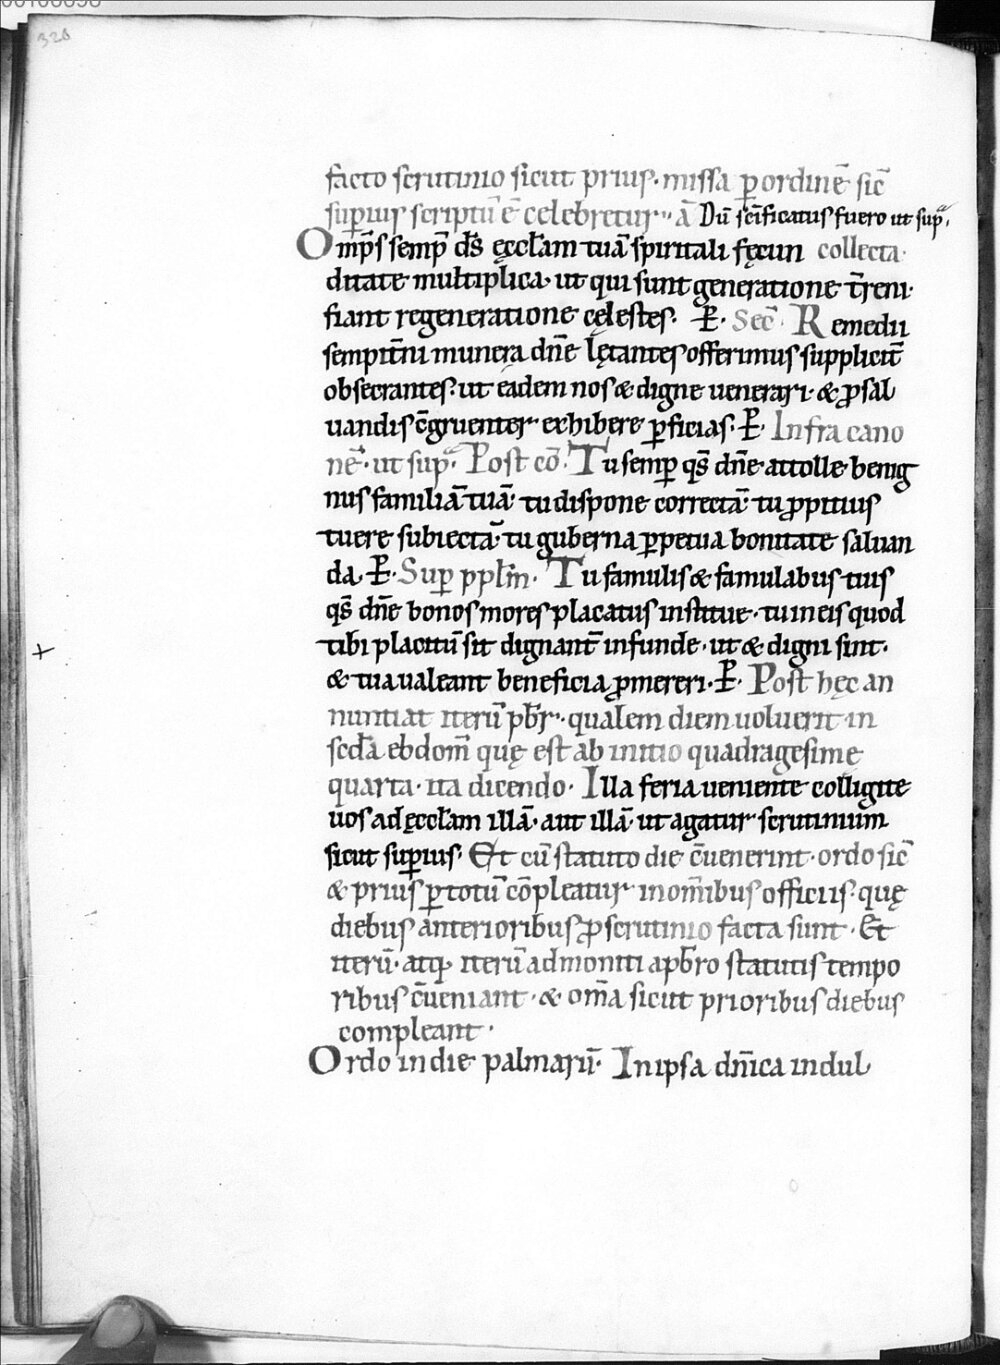 320
facto scrutinio sicut prius· missa ꝑ ordinē sic̄
suꝑius scriptū ē celebretur·· a͞ Dū sc̄ificatus fuero ut sup͂·
Omp̄s semp̄ ds̄ ęccl̄am tuā spiritali fęcun collecta·
ditate multiplica· ut qui sunt generatione t̄reni·
fiant regeneratione cęlestes· P̵· Sec̄· Remedii
sempit̄ni munera dn̄e lętantes offerimus supplicit̄
obsecrantes· ut eadem nos & digne uenerari· & ꝓ sal
uandis c̄gruenter exhibere ꝑficias· P̵· Infra cano
nē· ut sup͂· Post cō· Tu semp̄ qs̄ dn̄e attolle benig
nus familiā tuā· tu dispone correctā· tu ꝓpitius
tuere subiectā· tu guberna ꝑpetua bonitate saluan
da· P̵· Suꝑ ppl̄m· Tu famulis & famulabus tuis
qs̄ dn̄e bonos mores placatus institue· tu in eis quod
tibi placitū sit dignant̄ infunde· ut & digni sint·
& tua ualeant beneficia ꝓmereri· P̵· Post hęc an
nuntiat iterū pb̄r· qualem diem uoluerit in
scd̄a ebdom̄ quę est ab initio quadragesimę
quarta· ita dicendo· Illa feria ueniente colligite
uos ad ęccl̄am illā· aut illā· ut agatur scrutinium
sicut suꝑius· Et cū statuto die c̄uenerint· ordo sic̄
& prius ꝑ totū cōpleatur in om̄ibus officiis· quę
diebus anterioribus ꝓ scrutinio facta sunt· Et
iterū· atq; iterū admoniti a pb̄ro statutis tempo
ribus c̄ueniant· & om̄a sicut prioribus diebus
compleant·
Ordo in die palmarū· In ipsa dn̄ica indul